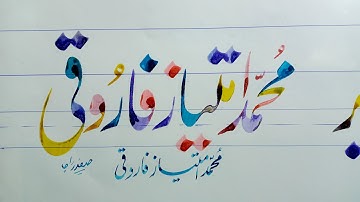 محمد امتیاز فاروقی
محمد امتیاز فاروقی
صفدر راجا